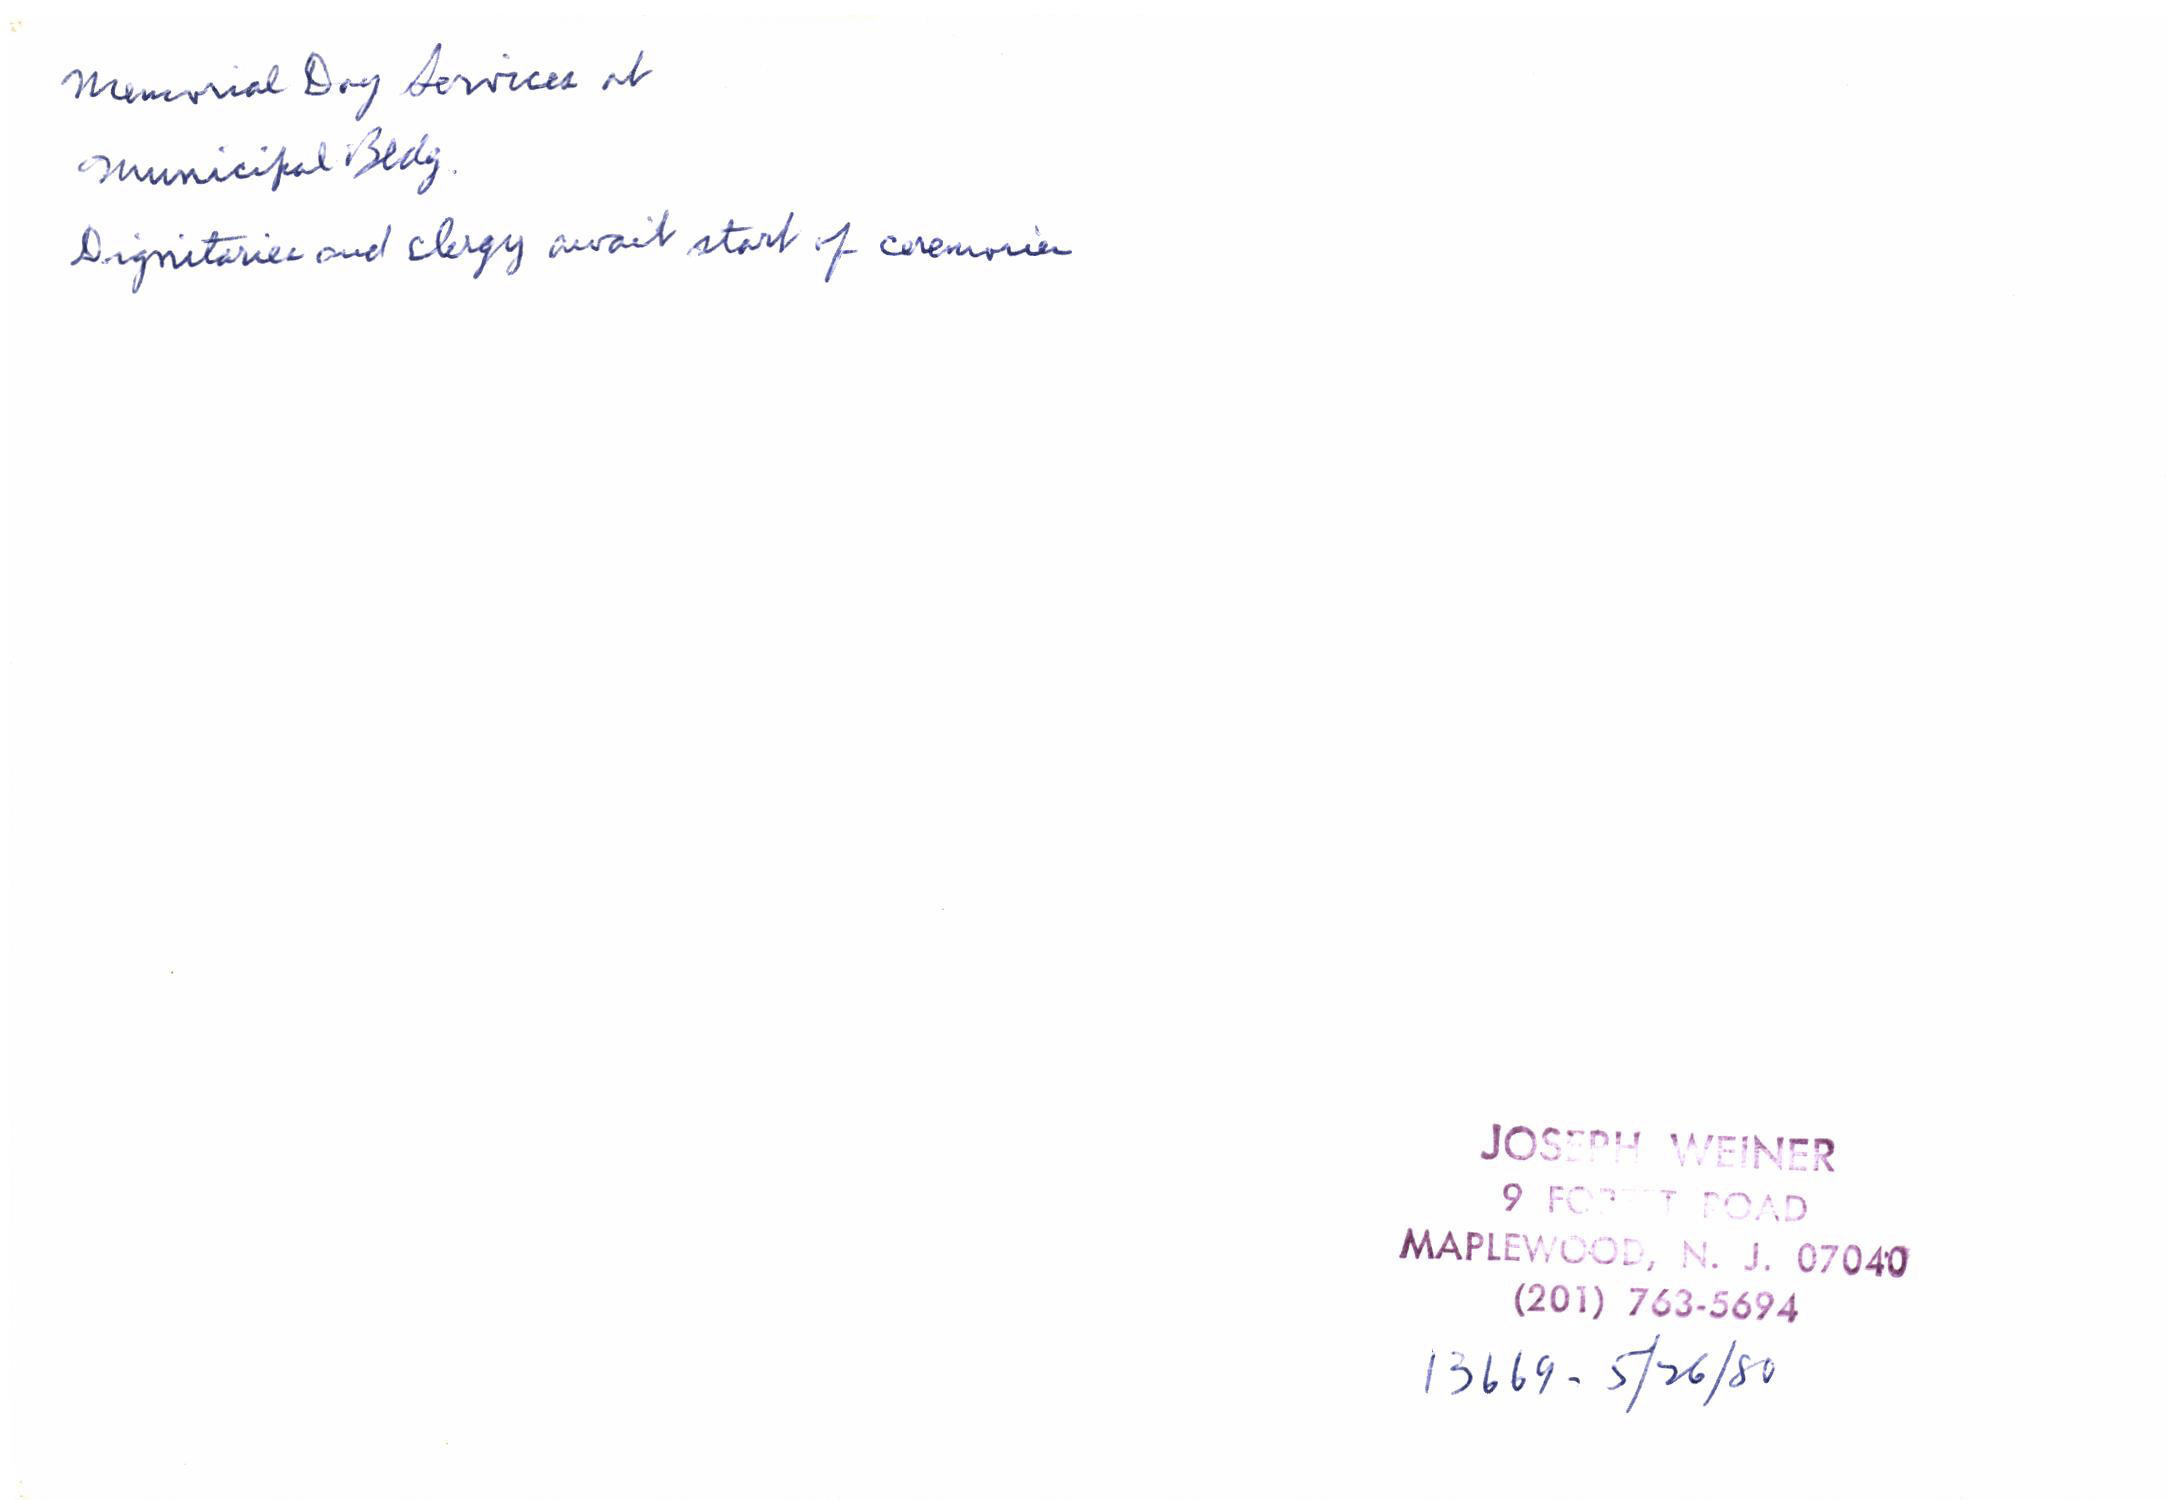 Memorial Day Services at
Municipal Bldg.
Dignitaries and clergy await start of ceremonies
JOSEPH WEINER
9 FOREST ROAD
MAPLEWOOD, N. J. 07040
(201) 763-5694
13669 - 5/26/80